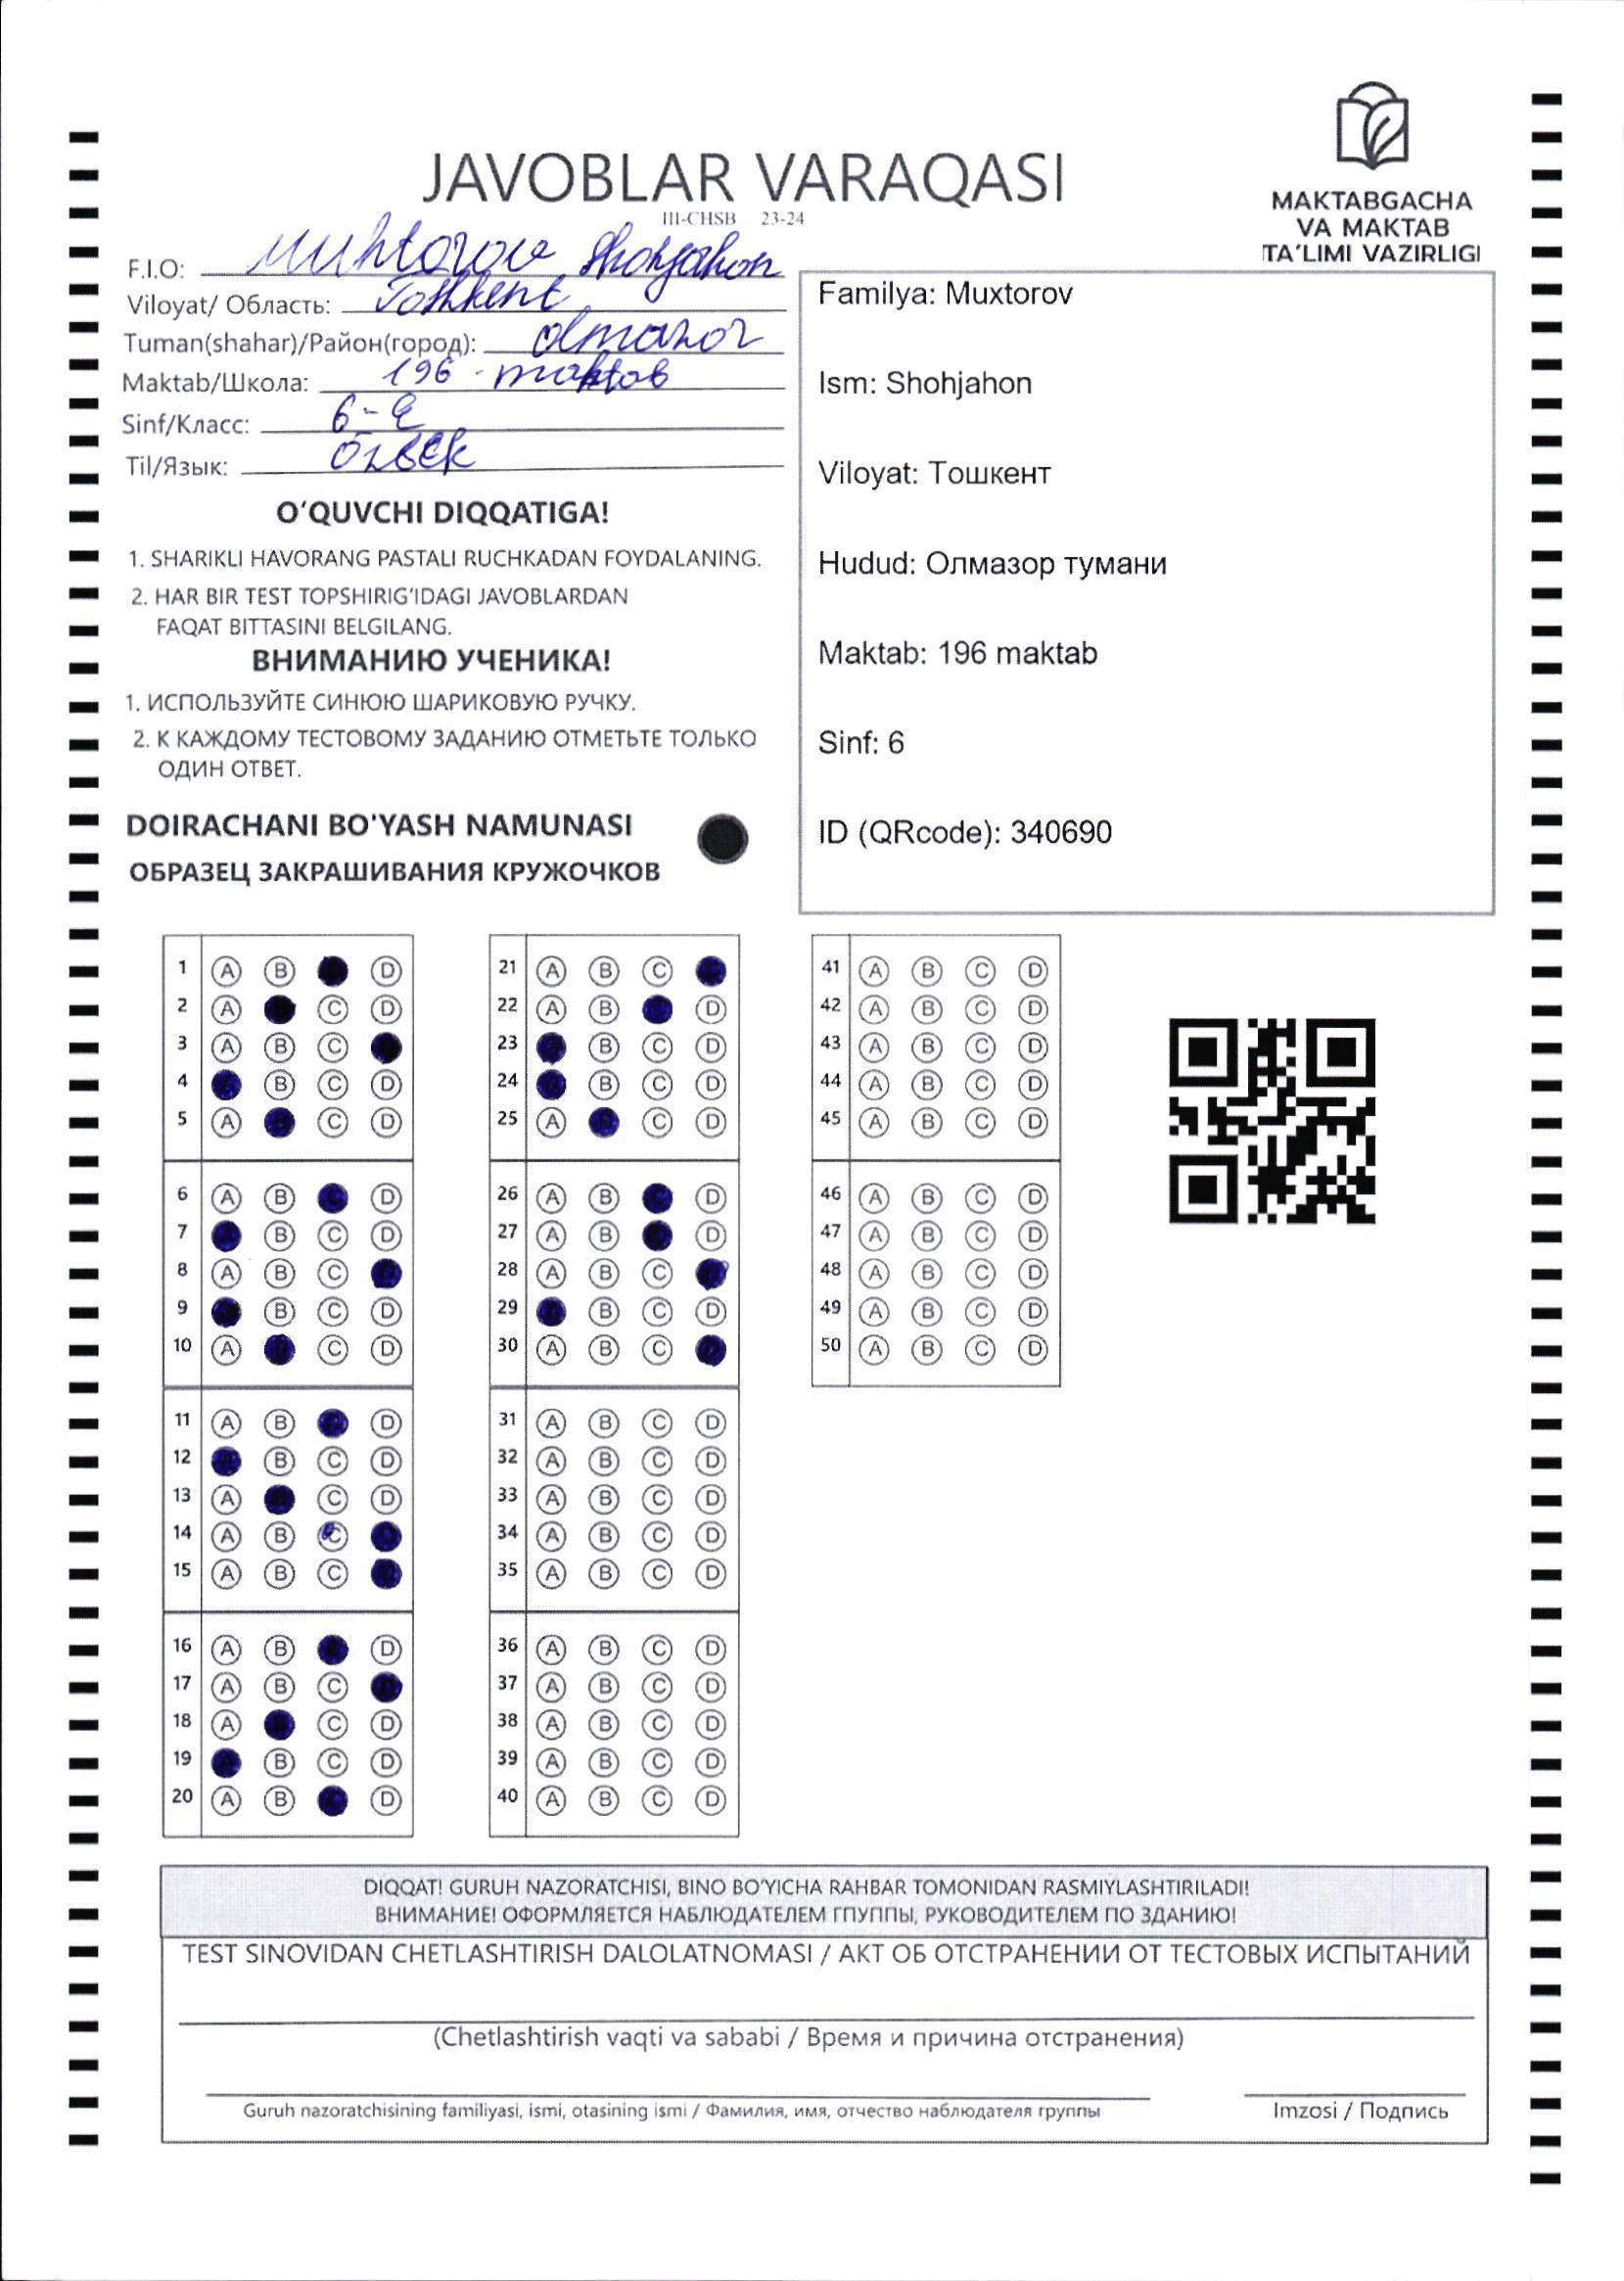 JAVOBLAR VARAQASI
III-CHSB 23-24
MAKTABGACHA
VA MAKTAB
TA'LIMI VAZIRLIGI
F.I.O: Muhtorov Shohjahon
Viloyat/ Область: Toshkent
Tuman(shahar)/Район(город): Olmazor
Maktab/Школа: 196 - maktab
Sinf/Класс: 6-
Til/Язык: Ozbek
O'QUVCHI DIQQATIGA!
1. SHARIKLI HAVORANG PASTALI RUCHKADAN FOYDALANING.
2. HAR BIR TEST TOPSHIRIG'IDAGI JAVOBLARDAN
FAQAT BITTASINI BELGILANG.
ВНИМАНИЮ УЧЕНИКА!
1. ИСПОЛЬЗУЙТЕ СИНЮЮ ШАРИКОВУЮ РУЧКУ.
2. К КАЖДОМУ ТЕСТОВОМУ ЗАДАНИЮ ОТМЕТЬТЕ ТОЛЬКО
ОДИН ОТВЕТ.
DOIRACHANI BO'YASH NAMUNASI
ОБРАЗЕЦ ЗАКРАШИВАНИЯ КРУЖОЧКОВ
Familya: Muxtorov
Ism: Shohjahon
Viloyat: Тошкент
Hudud: Олмазор тумани
Maktab: 196 maktab
Sinf: 6
ID (QRcode): 340690
1 A B D
2 A C D
3 A B C
4 B C D
5 A C D
6 A B D
7 B C D
8 A B C
9 B C D
10 A C D
11 A B D
12 B C D
13 A C D
14 A B C
15 A B C
16 A B D
17 A B C
18 A C D
19 B C D
20 A B D
21 A B C
22 A B D
23 B C D
24 B C D
25 A C D
26 A B D
27 A B D
28 A B C
29 B C D
30 A B C
31 A B C D
32 A B C D
33 A B C D
34 A B C D
35 A B C D
36 A B C D
37 A B C D
38 A B C D
39 A B C D
40 A B C D
41 A B C D
42 A B C D
43 A B C D
44 A B C D
45 A B C D
46 A B C D
47 A B C D
48 A B C D
49 A B C D
50 A B C D
DIQQAT! GURUH NAZORATCHISI, BINO BO'YICHA RAHBAR TOMONIDAN RASMIYLASHTIRILADI!
ВНИМАНИЕ! ОФОРМЛЯЕТСЯ НАБЛЮДАТЕЛЕМ ГПУППЫ, РУКОВОДИТЕЛЕМ ПО ЗДАНИЮ!
TEST SINOVIDAN CHETLASHTIRISH DALOLATNOMASI / АКТ ОБ ОТСТРАНЕНИИ ОТ ТЕСТОВЫХ ИСПЫТАНИЙ
(Chetlashtirish vaqti va sababi / Время и причина отстранения)
Guruh nazoratchisining familiyasi, ismi, otasining ismi / Фамилия, имя, отчество наблюдателя группы
Imzosi / Подпись